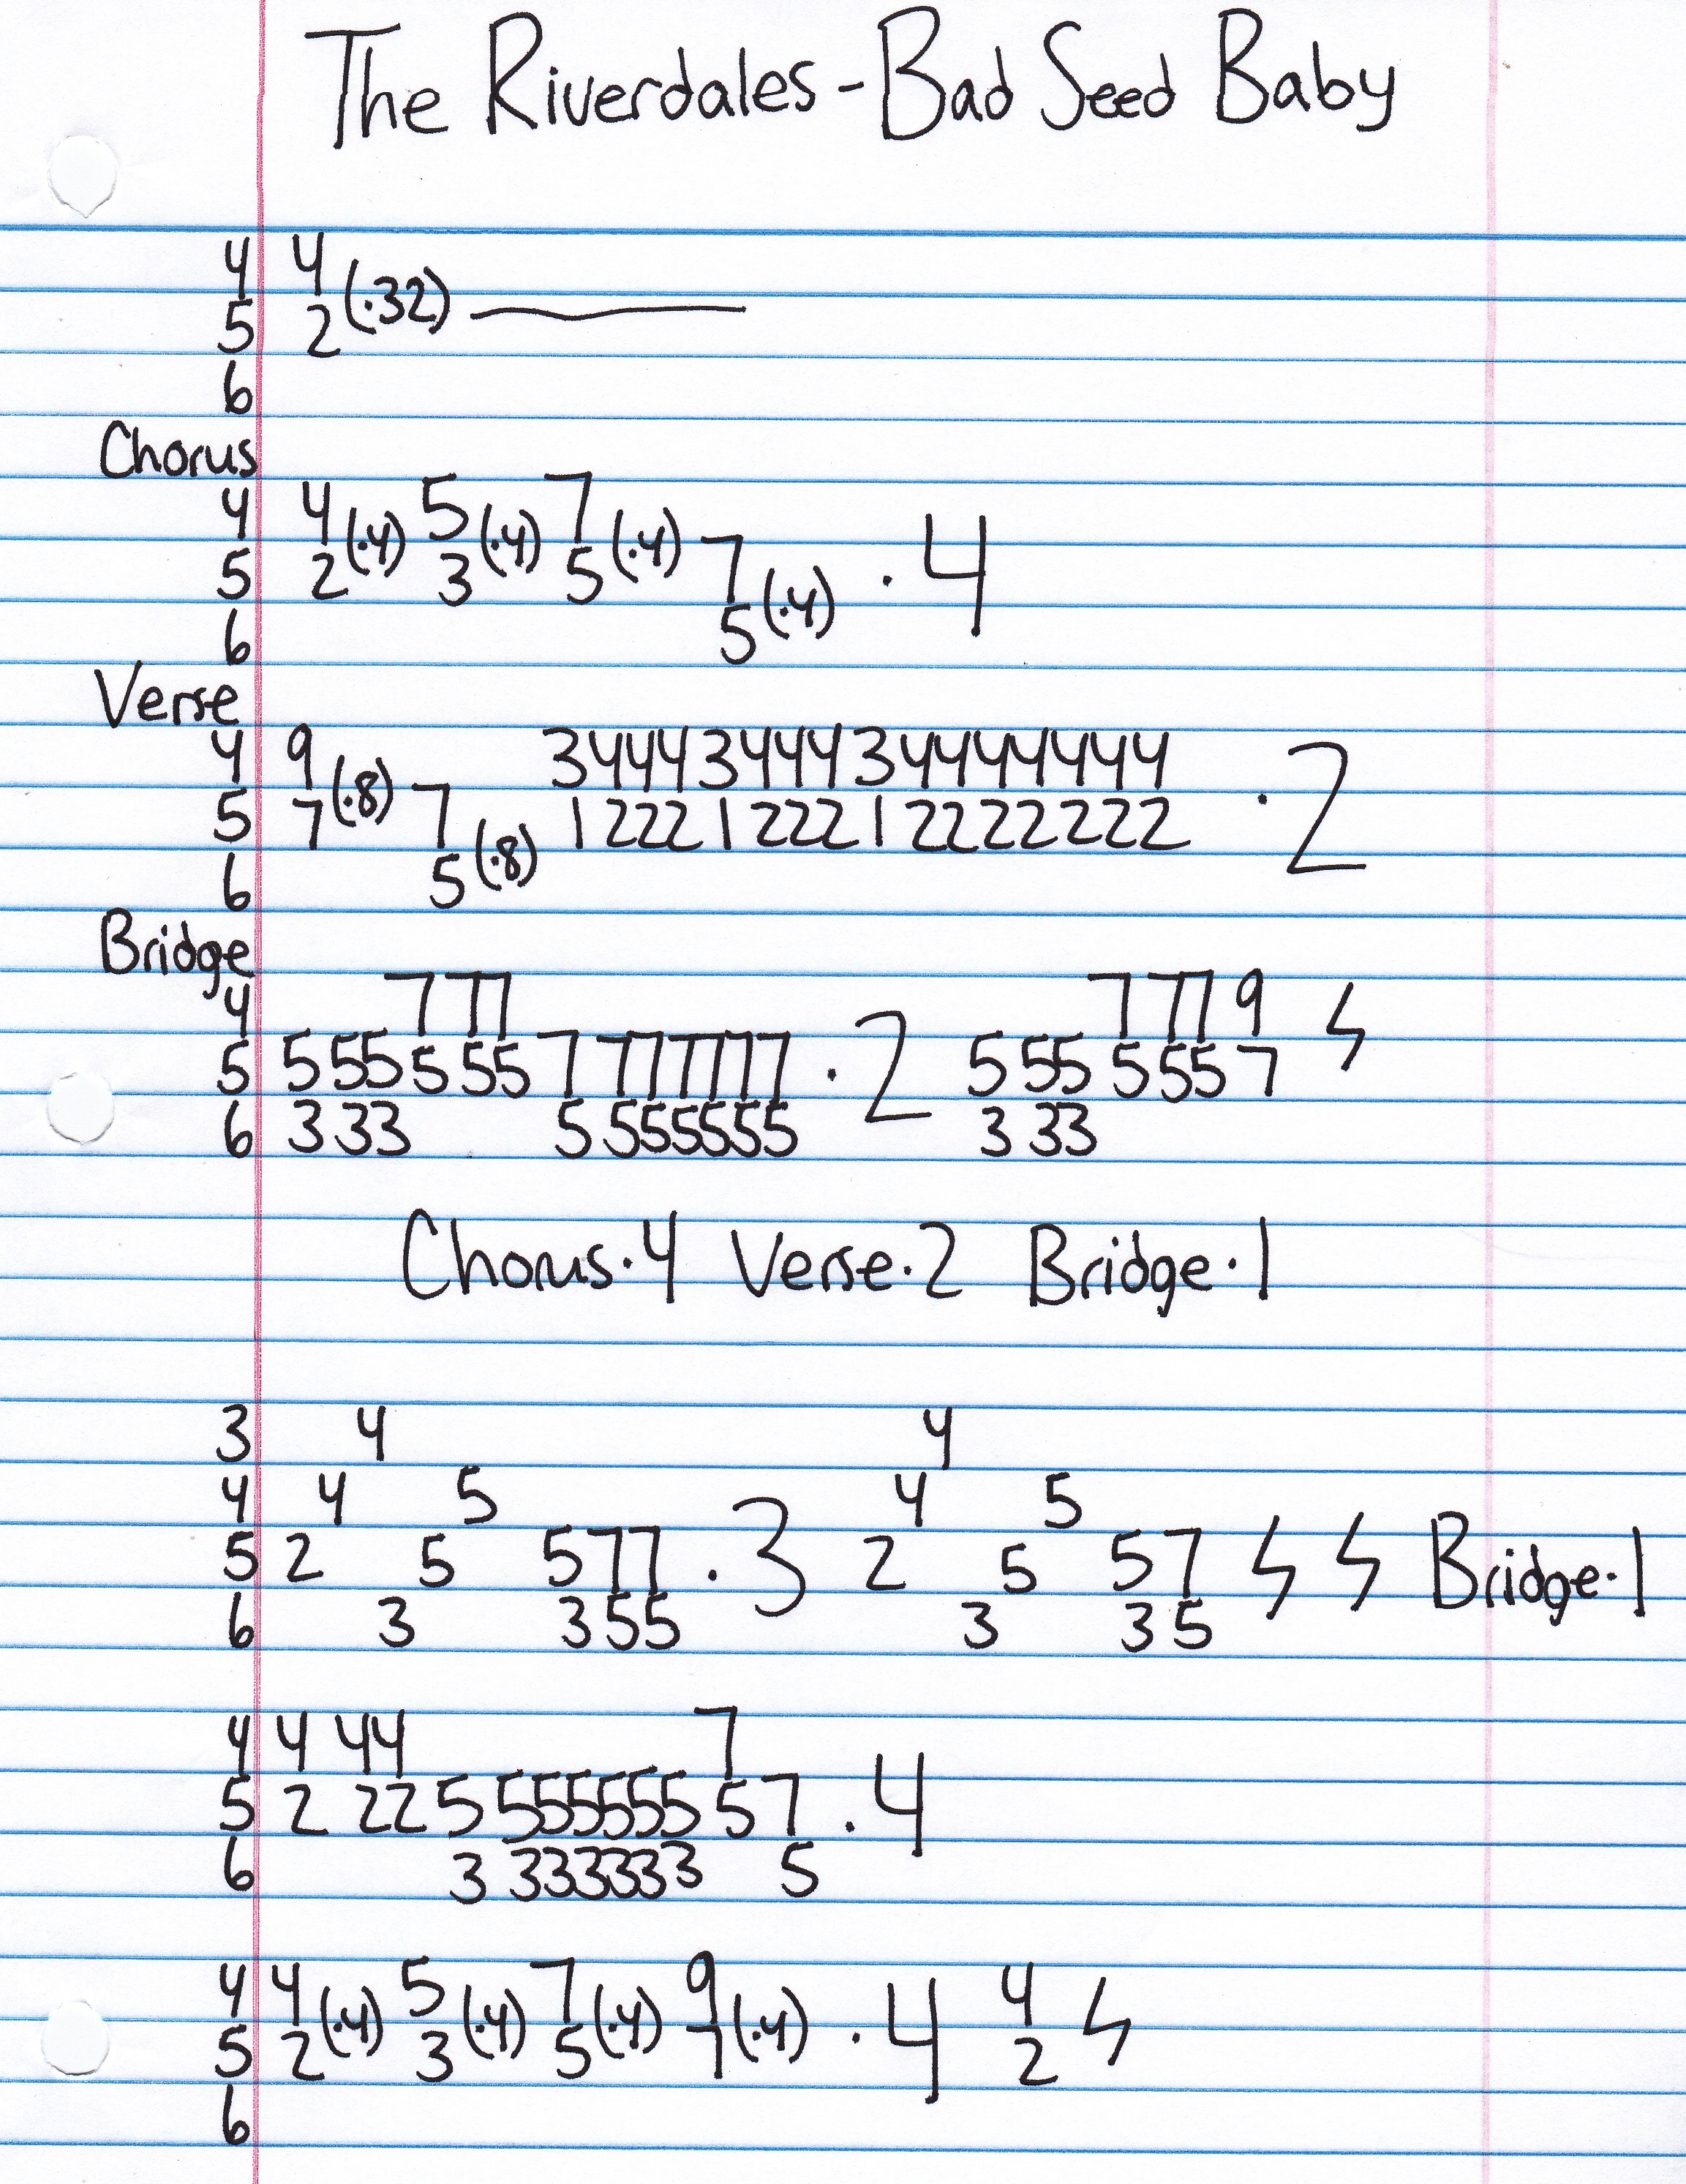 The Riverdales - Bad Seed Baby
4 4
5 2 (·32)
6
Chorus
4 4 5 7
5 2 (·4) 3 (·4) 5 (·4) 7 · 4
6 5 (·4)
Verse
4 9 3444344434444444
5 7 (·8) 7 1222122212222222 · 2
6 5 (·8)
Bridge
4 7 77 7 77 9
5 5 55 5 55 7 777777 · 2 5 55 5 55 7 ϟ
6 3 33 5 555555 3 33
Chorus·4 Verse·2 Bridge·1
3 4 4
4 4 5 4 5
5 2 5 577 · 3 2 5 57 ϟ ϟ Bridge·1
6 3 355 3 35
4 4 44 7
5 2 22 5 555555 57 · 4
6 3 333333 5
4 4 5 7 9 4
5 2 (·4) 3 (·4) 5 (·4) 7 (·4) · 4 2 ϟ
6